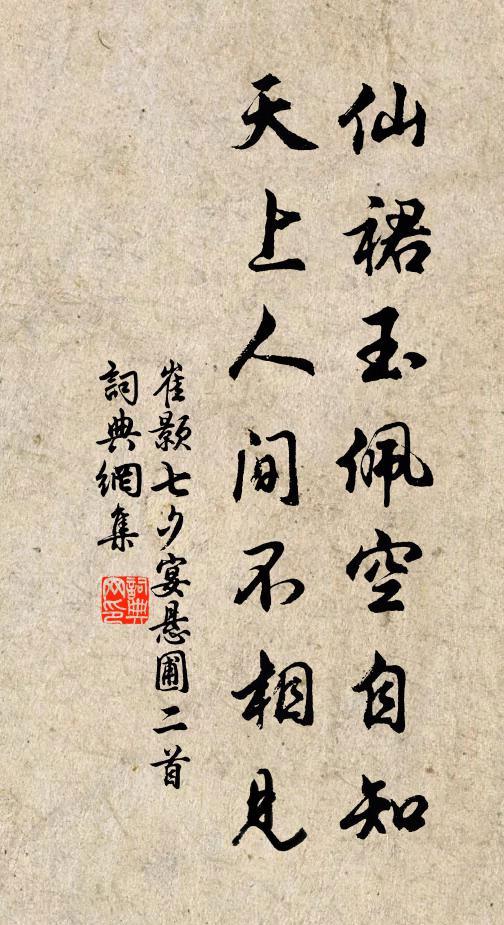 仙裙玉佩空自知
天上人間不相見
崔顥七夕宴悬圃二首
詞典網集
詞典
网印